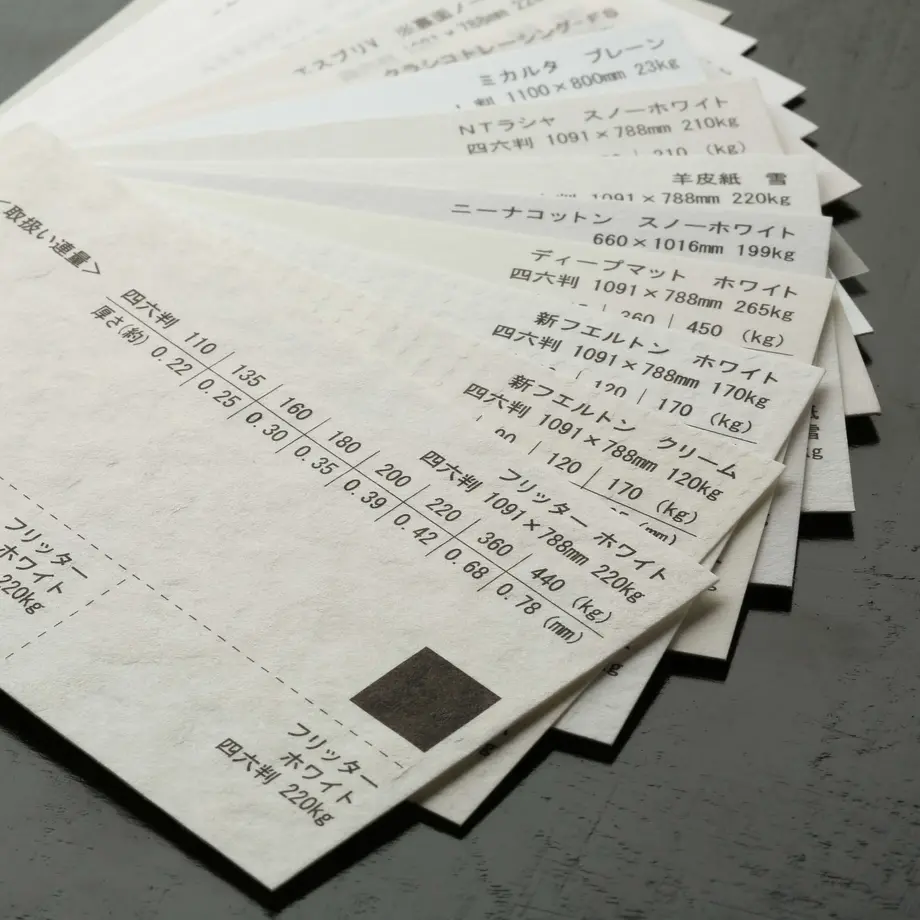 エスプリV ※裏面ノー
クラシコトレーシング-FS
ミカルタ プレーン
判 1100×800mm 23kg
NTラシャ スノーホワイト
四六判 1091×788mm 210kg
210 (kg)
羊皮紙 雪
1091×788mm 220kg
ニーナコットン スノーホワイト
660×1016mm 199kg
ディープマット ホワイト
四六判 1091×788mm 265kg
360 | 450 (kg)
新フエルトン ホワイト
四六判 1091×788mm 170kg
120 | 170 (kg)
新フエルトン クリーム
四六判 1091×788mm 120kg
120 | 170 (kg)
(mm)
フリッター ホワイト
四六判 1091×788mm 220kg
<取扱い連量>
四六判 110 | 135 | 160 | 180 | 200 | 220 | 360 | 440 (kg)
厚さ(約) 0.22 | 0.25 | 0.30 | 0.35 | 0.39 | 0.42 | 0.68 | 0.78 (mm)
フリッター
ホワイト
220kg
フリッター
ホワイト
四六判 220kg
雪
kg
kg